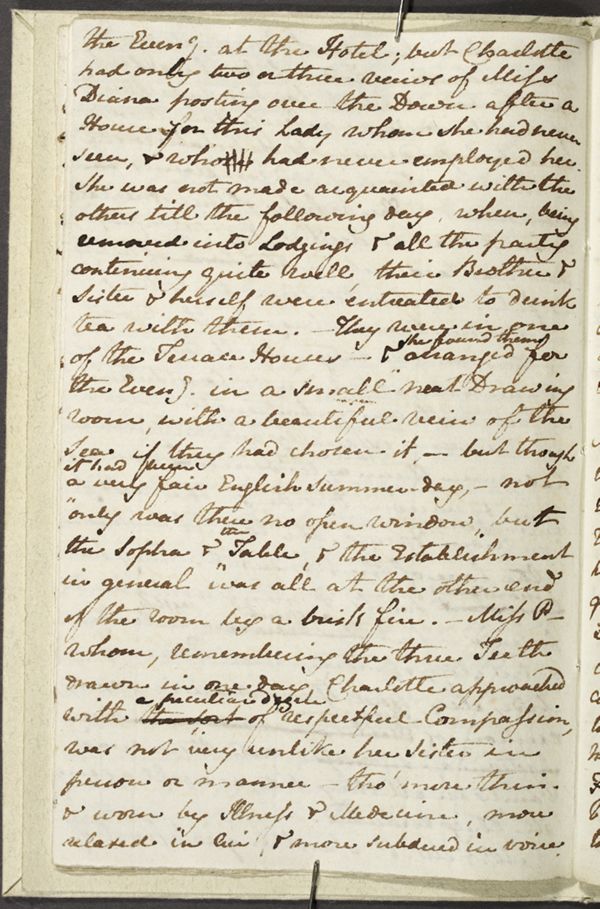 the Eveng. at the Hotel; but Charlotte
had only two or three veiws of Miss
Diana posting over the Down after a
House for this Lady whom she had never
seen, & who had never employed her.
She was not made acquainted with the
others till the following day, when, being
removed into Lodgings & all the party
continuing quite well, their Brother &
Sister & herself were entreated to drink
tea with them. — They were in one
of the Terrace Houses — & she found them arranged for
the Eveng. in a small neat Drawing
room, with a beautiful veiw of the
Sea if they had chosen it, — but though
it had been a very fair English Summer-day, — not
only was there no open window, but
the Sopha & the Table, & the Establishment
in general was all at the other end
of the room by a brisk fire. — Miss P—
whom, remembering the three Teeth
drawn in one day, Charlotte approached
with a peculiar degree of respectful Compassion,
was not very unlike her Sister in
person or manner — tho' more thin
& worn by Illness & Medecine, more
relaxed in air, & more subdued in voice.